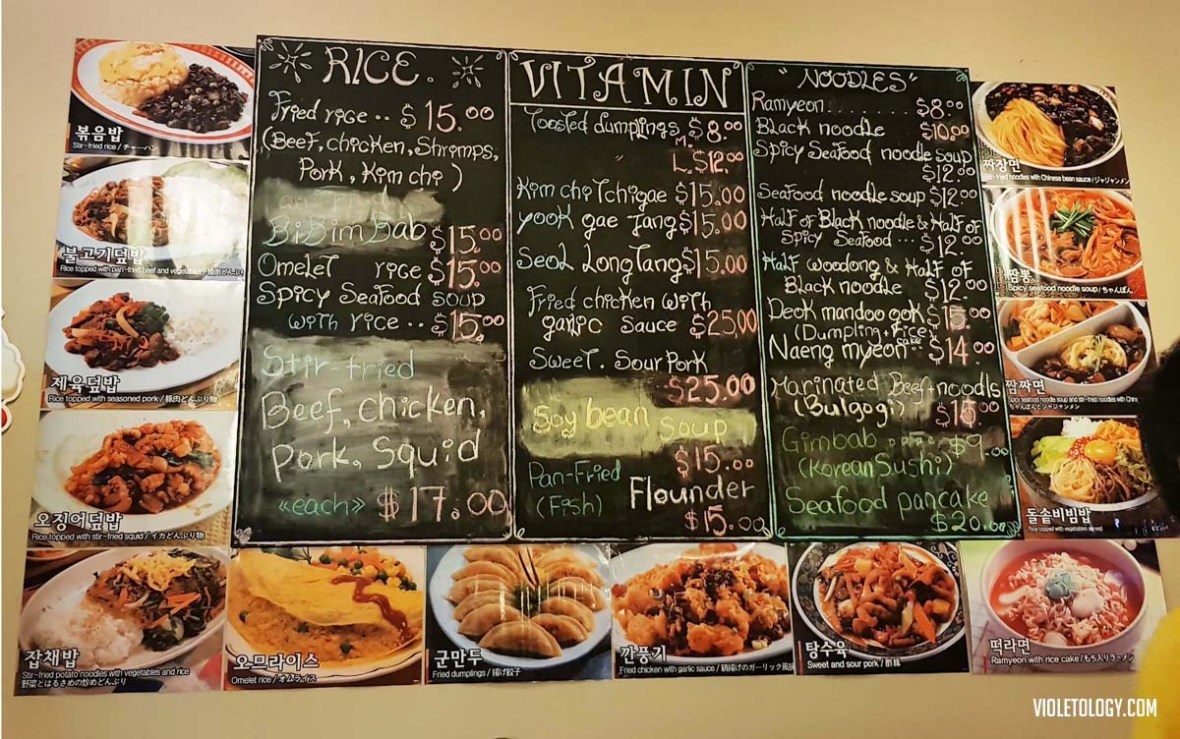 RICE.
Fried rice .. $15.00
(Beef, chicken, Shrimps,
Pork, Kim chi)
BiBimBab $15.00
Omelet rice $15.00
Spicy Seafood soup
with rice .. $15.00
Stir-fried
Beef, chicken,
Pork, Squid
«each» $17.00
VITAMIN
Toasted dumplings M. $8.00
" L. $12.00
Kim chi Tchigae $15.00
yook gae Jang $15.00
Seol Long Tang $15.00
Fried chicken with
garlic sauce $25.00
Sweet. Sour Pork
$25.00
Soy bean Soup
$15.00
Pan-Fried
(Fish) Flounder
$15.00
"NOODLES"
Ramyeon......... $8.00
Black noodle $10.00
Spicy Seafood noodle soup
$12.00
Seafood noodle soup $12.00
Half of Black noodle & Half of
Spicy Seafood ... $12.
Half woodong & Half of
Black noodle $12.00
Deok mandoo gok $15.00
(Dumpling, rice cake)
Naeng myeon .. $14.00
Marinated Beef+noodls
(Bulgogi) $15.00
Gimbab .... $9.00
(Korean Sushi)
Seafood pancake
$20.00
볶음밥
Stir-fried rice / チャーハン
불고기덮밥
Rice topped with pan-fried beef and vegetables
제육덮밥
Rice topped with seasoned pork / 豚肉どんぶり物
오징어덮밥
Rice topped with stir-fried squid / イカどんぶり物
잡채밥
Stir-fried potato noodles with vegetables and rice
野菜とはるさめの炒めどんぶり
오므라이스
Omelet rice / オムライス
군만두
Fried dumplings / 揚げ餃子
깐풍기
Fried chicken with garlic sauce / 鶏揚げのガーリック風味
탕수육
Sweet and sour pork / 酢豚
떡라면
Ramyeon with rice cake / もち入りラーメン
짜장면
Stir-fried noodles with Chinese bean sauce / ジャジャンメン
짬뽕
Spicy seafood noodle soup / ちゃんぽん
짬짜면
Spicy seafood noodle soup and stir-fried noodles with Chin
ちゃんぽんとジャジャンメン
돌솥비빔밥
VIOLETOLOGY.COM